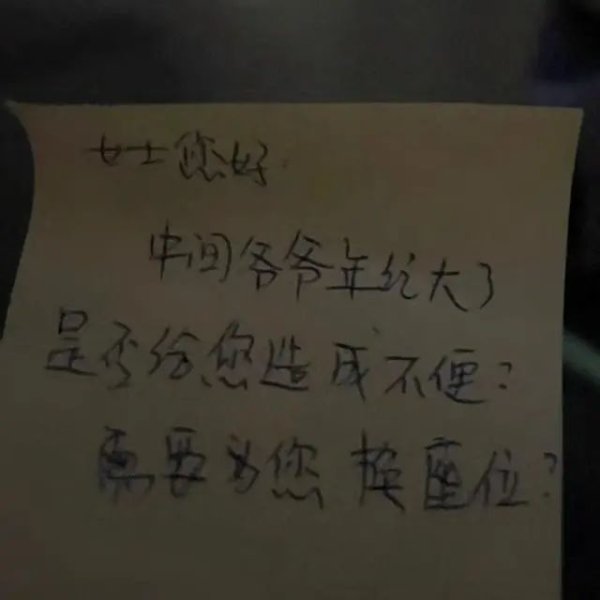 女士您好
中间爷爷年纪大了
是否给您造成不便?
需要为您换座位?